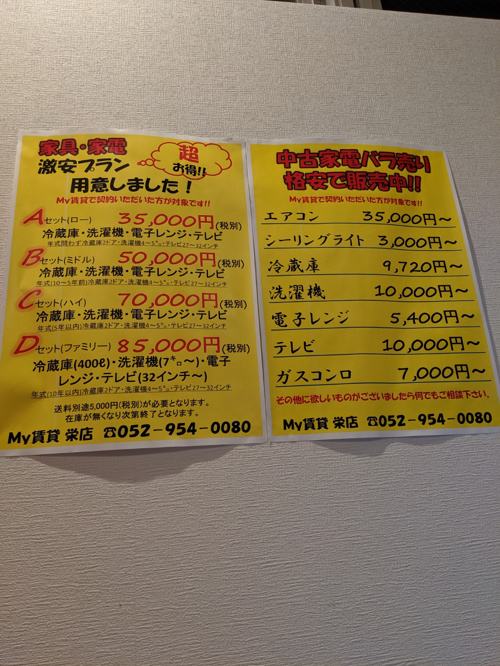 家具・家電
激安プラン
用意しました!
超
お得!!
My賃貸で契約いただいた方が対象です!!
Aセット(ロー) 35,000円(税別)
冷蔵庫・洗濯機・電子レンジ・テレビ
年式問わず冷蔵庫2ドア・洗濯機4~5㌔・テレビ27~32インチ
Bセット(ミドル) 50,000円(税別)
冷蔵庫・洗濯機・電子レンジ・テレビ
年式(10~5年前)冷蔵庫2ドア・洗濯機4~5㌔・テレビ27~32インチ
Cセット(ハイ) 70,000円(税別)
冷蔵庫・洗濯機・電子レンジ・テレビ
年式(5年以内)冷蔵庫2ドア・洗濯機4~5㌔・テレビ27~32インチ
Dセット(ファミリー) 85,000円(税別)
冷蔵庫(400ℓ)・洗濯機(7㌔~)・電子
レンジ・テレビ(32インチ~)
年式(10年以内)冷蔵庫2ドア・洗濯機4~5㌔・テレビ27~32インチ
送料別途5,000円(税別)が必要となります。
在庫が無くなり次第終了となります。
My賃貸 栄店 ☎052-954-0080
中古家電バラ売り
格安で販売中!!
My賃貸で契約いただいた方が対象です!!
エアコン 35,000円~
シーリングライト 3,000円~
冷蔵庫 9,720円~
洗濯機 10,000円~
電子レンジ 5,400円~
テレビ 10,000円~
ガスコンロ 7,000円~
その他に欲しいものがございましたら何でもご相談下さい。
My賃貸 栄店 ☎052-954-0080